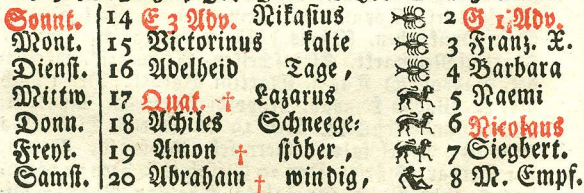 Sonnt. 14 E 3 Adv. Nikasius 2 G 1. Adv.
Mont. 15 Victorinus kalte 3 Franz. X.
Dienst. 16 Adelheid Tage, 4 Barbara
Mittw. 17 Quat. † Lazarus 5 Naemi
Donn. 18 Achiles Schneege- 6 Nicolaus
Freyt. 19 Amon † stöber, 7 Siegbert.
Samst. 20 Abraham † windig, 8 M. Empf.